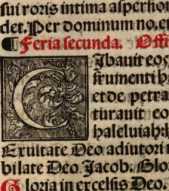 sui roris intima asperhon
det. Per dominum no. et
Feria secunda. Offi
Cibauit eos
frumenti
et de petra
turauit eos
haleluiah
Exultate Deo adiutori n
bilate Deo Jacob. Glo
Gloria in excelsis Deo.